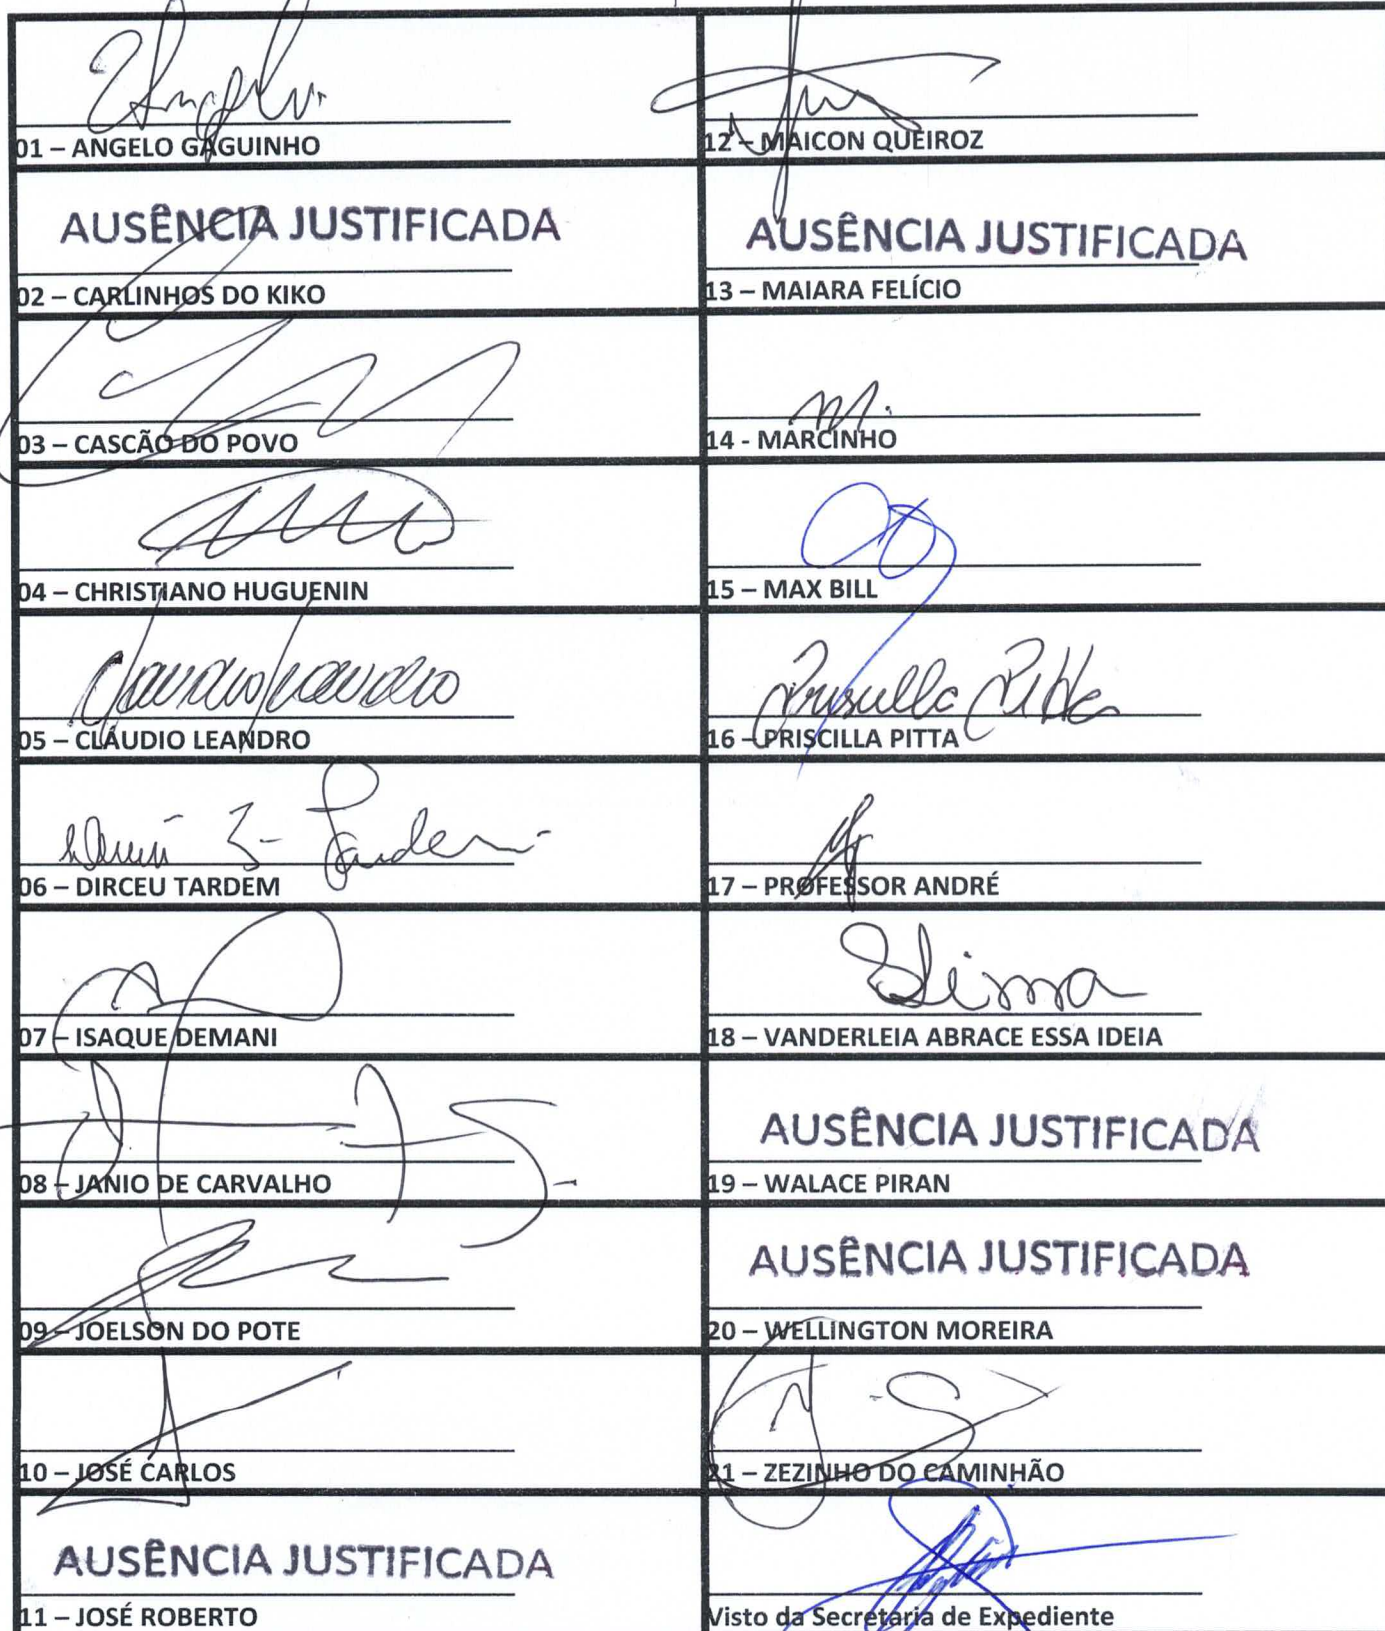 01 – ANGELO GAGUINHO
AUSÊNCIA JUSTIFICADA
02 – CARLINHOS DO KIKO
03 – CASCÃO DO POVO
04 – CHRISTIANO HUGUENIN
05 – CLÁUDIO LEANDRO
06 – DIRCEU TARDEM
07 – ISAQUE DEMANI
08 – JANIO DE CARVALHO
09 – JOELSON DO POTE
10 – JOSÉ CARLOS
AUSÊNCIA JUSTIFICADA
11 – JOSÉ ROBERTO
12 – MAICON QUEIROZ
AUSÊNCIA JUSTIFICADA
13 – MAIARA FELÍCIO
14 - MARCINHO
15 – MAX BILL
Priscilla Pitta
16 – PRISCILLA PITTA
17 – PROFESSOR ANDRÉ
18 – VANDERLEIA ABRACE ESSA IDEIA
AUSÊNCIA JUSTIFICADA
19 – WALACE PIRAN
AUSÊNCIA JUSTIFICADA
20 – WELLINGTON MOREIRA
21 – ZEZINHO DO CAMINHÃO
Visto da Secretaria de Expediente